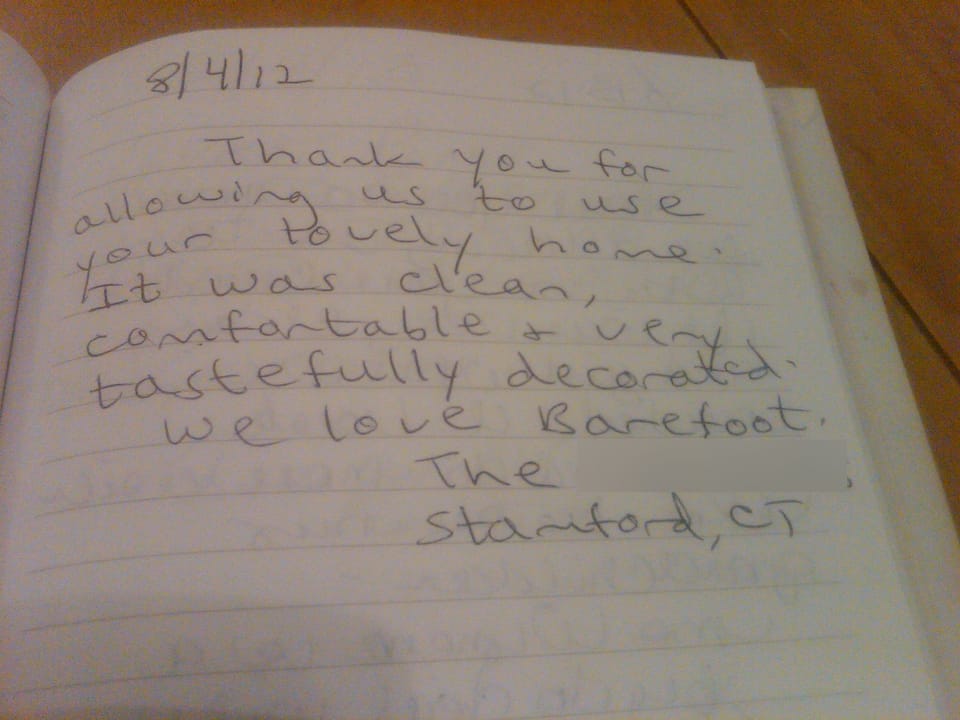 8/4/12
Thank you for
allowing us to use
your lovely home.
It was clean,
comfortable & very
tastefully decorated.
We love Barefoot.
The
Stamford, CT